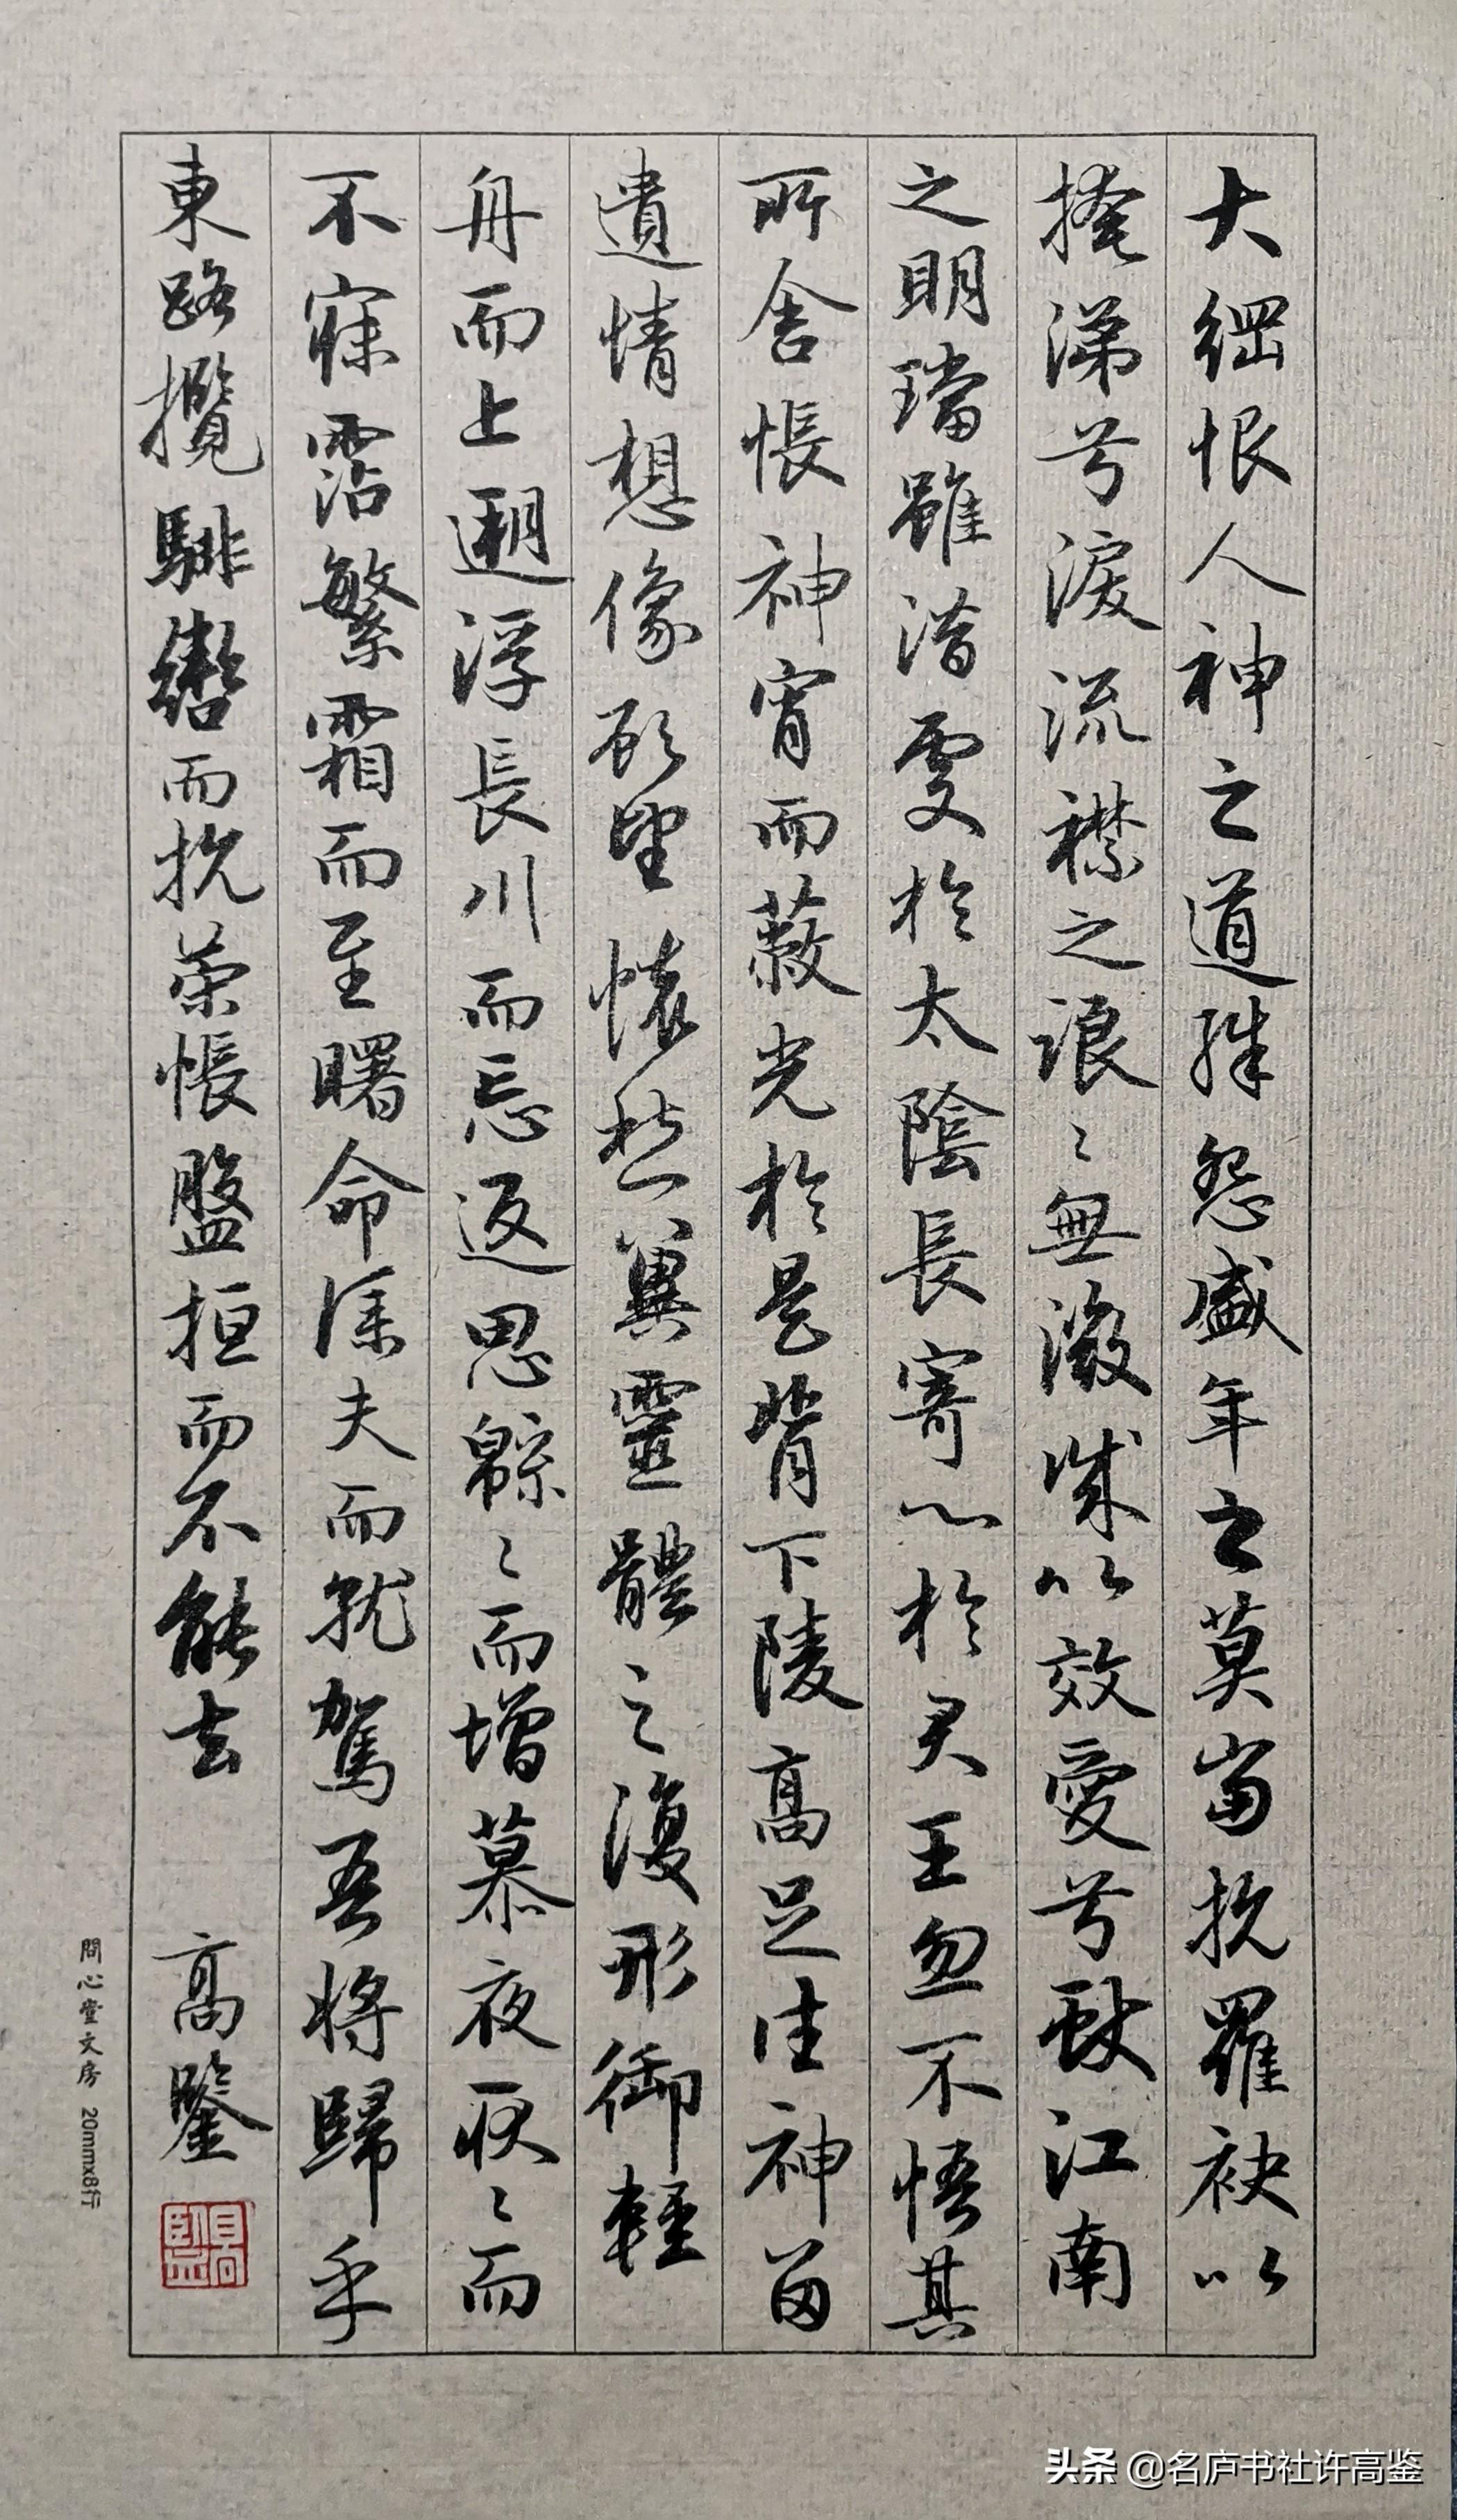 大綱恨人神之道殊怨盛年之莫當抗羅袂以
掩涕兮淚流襟之浪〻無微誠以效愛兮獻江南
之明璫雖潛處於太陰長寄心於君王忽不悟其
所舍悵神宵而蔽光於是背下陵高足往神留
遺情想像顧望懷愁冀靈體之復形御輕
舟而上遡浮長川而忘返思緜〻而增慕夜耿〻而
不寐霑繁霜而至曙命僕夫而就駕吾將歸乎
東路攬騑轡而抗策悵盤桓而不能去 高鑒
問心堂文房 20mmx8行
头条 @名庐书社许高鉴